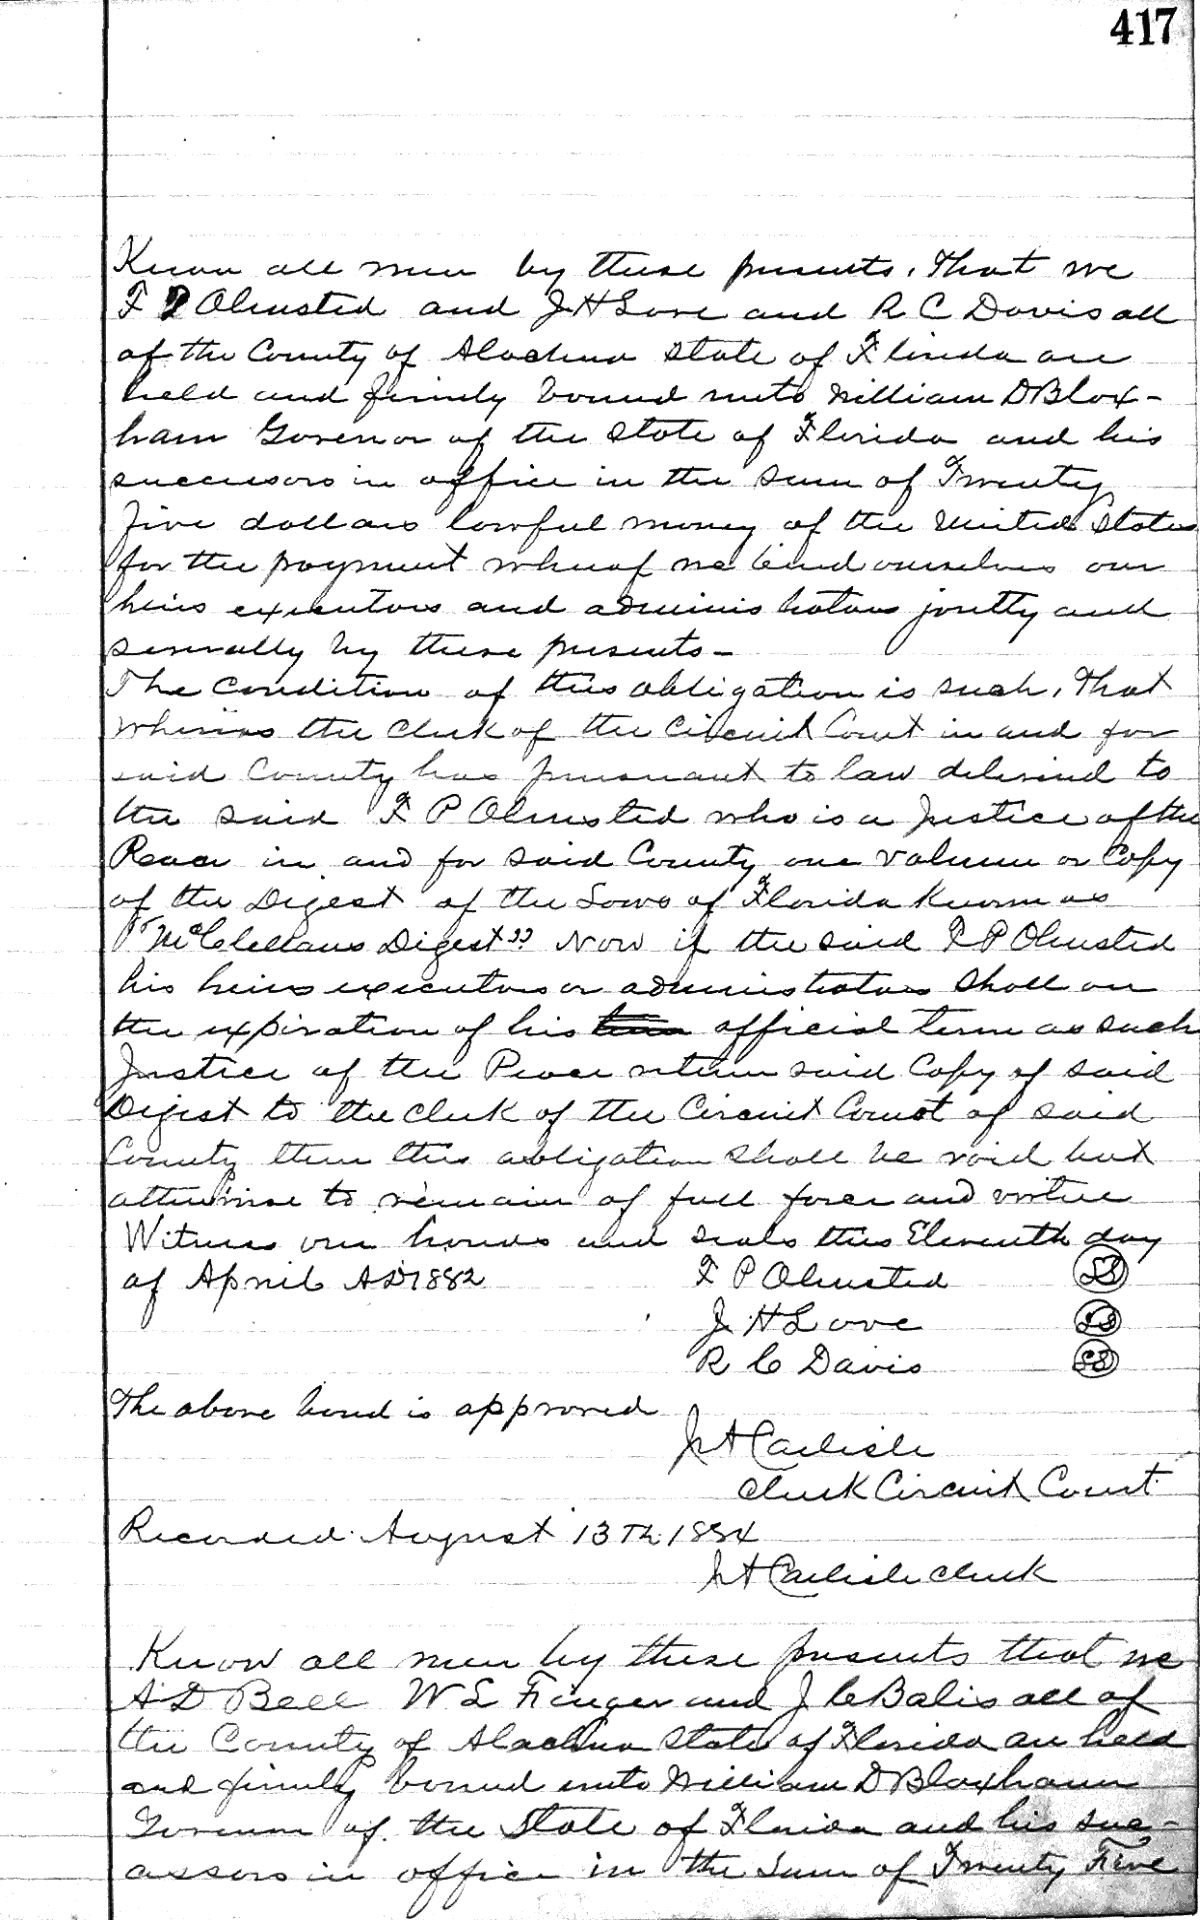 417
Know all men by these presents, that we
F P Olmsted and J H Love and R C Davis all
of the County of Alachua State of Florida are
held and firmly bound unto William D Blox-
ham Governor of the State of Florida and his
successors in office in the sum of Twenty
five dollars lawful money of the United States
for the payment whereof we bind ourselves our
heirs executors and administrators jointly and
severally by these presents -
The condition of this obligation is such, that
whereas the clerk of the Circuit Court in and for
said County has pursuant to law delivered to
the said F P Olmsted who is a Justice of the
Peace in and for said County one volume or Copy
of the Digest of the Laws of Florida Known as
"McClellans Digest" Now if the said F P Olmsted
his heirs executors or administrators shall on
the expiration of his official term as such
Justice of the Peace return said Copy of said
Digest to the clerk of the Circuit Court of said
County then this obligation shall be void but
otherwise to remain of full force and virtue
Witness our hands and seals this Eleventh day
of April AD 1882 F P Olmsted LS
J H Love LS
R C Davis LS
The above bond is approved
J A Carlisle
Clerk Circuit Court
Recorded August 13Th 1884
J A Carlisle clerk
Know all men by these presents that we
A D Bell W L Finger and J C Balis all of
the County of Alachua State of Florida are held
and firmly bound unto William D Bloxham
Governor of the State of Florida and his suc-
cessors in office in the sum of Twenty Five